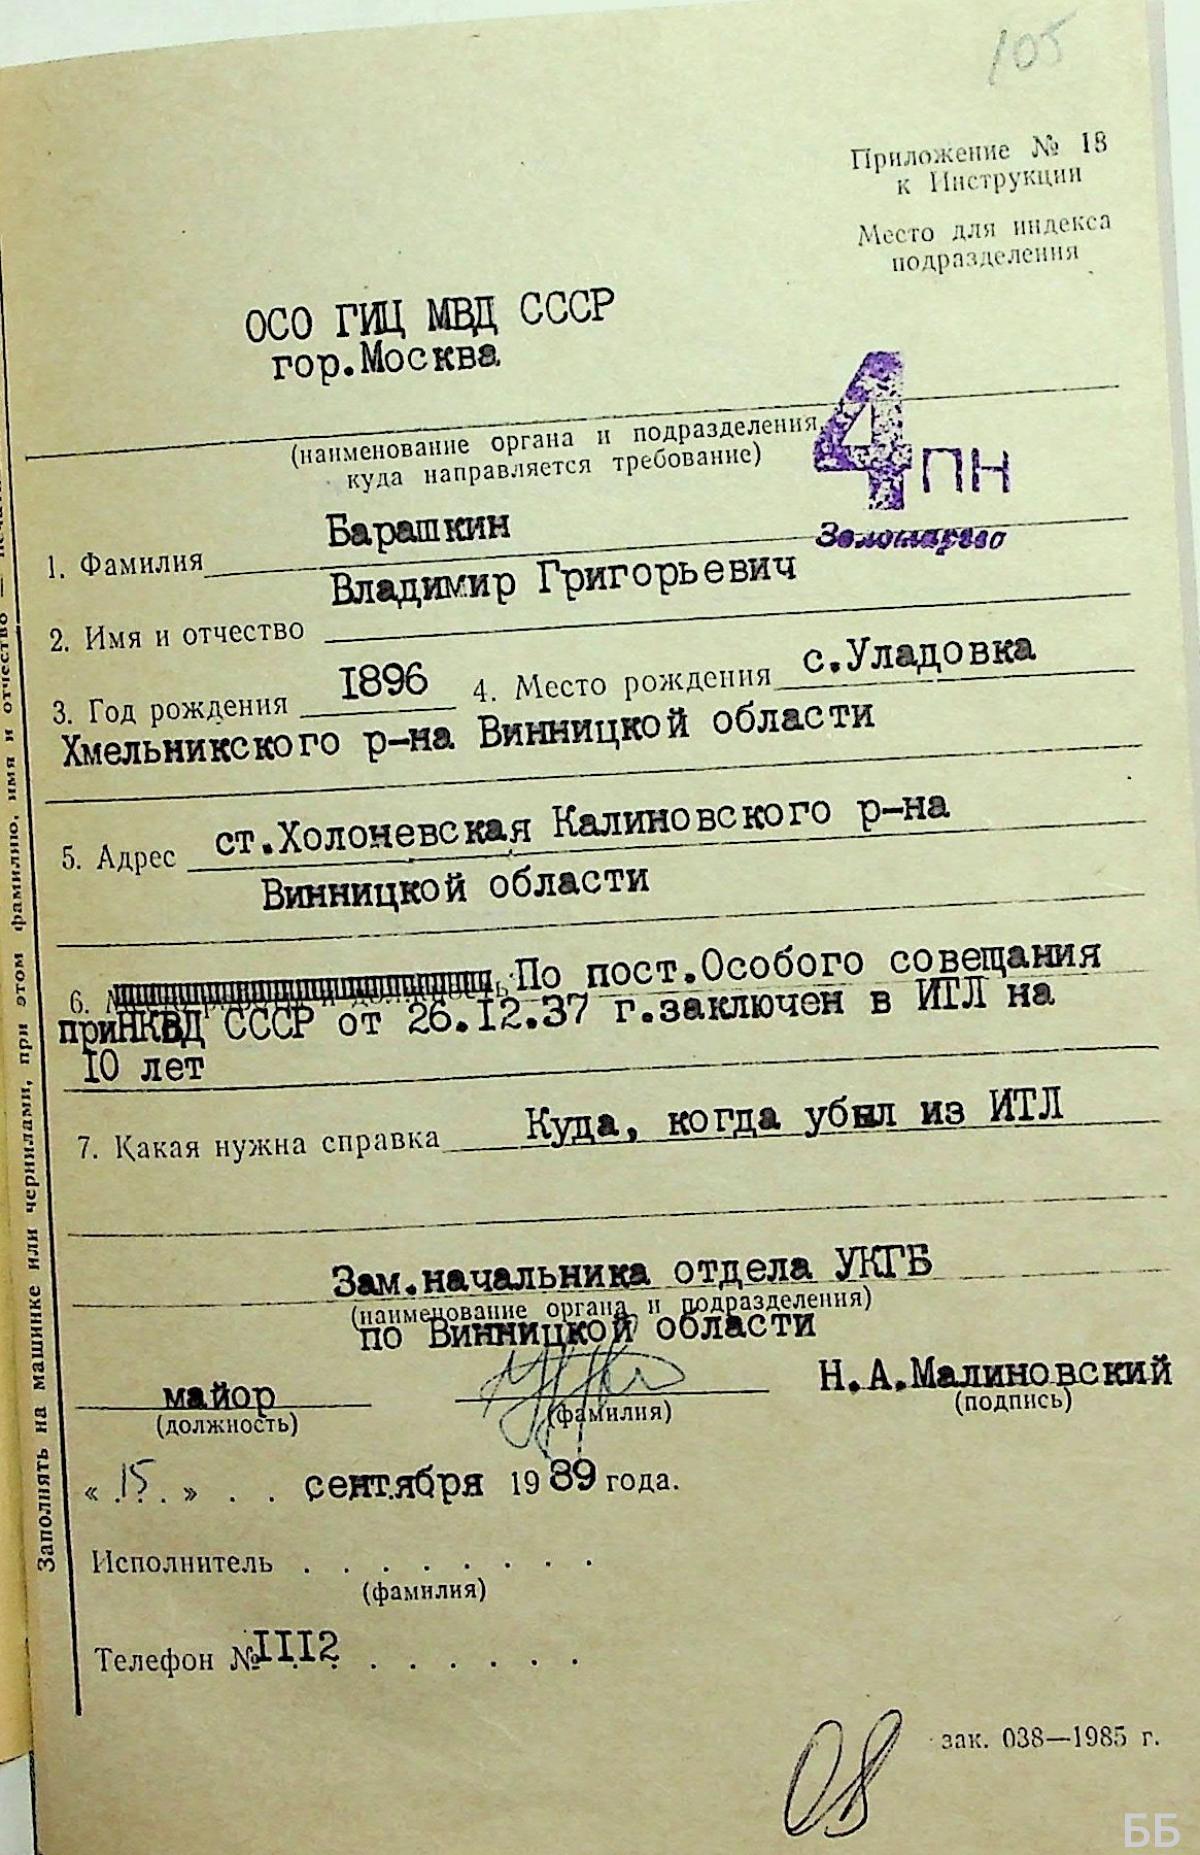 105
Приложение № 18
к Инструкции
Место для индекса
подразделения
ОСО ГИЦ МВД СССР
гор.Москва
(наименование органа и подразделения,
куда направляется требование)
4 ПН
1. Фамилия Барашкин
2. Имя и отчество Владимир Григорьевич
3. Год рождения 1896 4. Место рождения с.Уладовка
Хмельникского р-на Винницкой области
5. Адрес ст.Холоневская Калиновского р-на
Винницкой области
6. По пост.Особого совещания
приНКВД СССР от 26.12.37 г.заключен в ИТЛ на
10 лет
7. Какая нужна справка Куда, когда убыл из ИТЛ
Зам.начальника отдела УКГБ
(наименование органа и подразделения)
по Винницкой области
майор Н.А.Малиновский
(должность) (фамилия) (подпись)
« 15 » . . сентября 1989 года.
Исполнитель . . . . . . . .
(фамилия)
Телефон № 1112 . . . . . . .
зак. 038—1985 г.
08
Заполнять на машинке или чернилами, при этом фамилию, имя и отчество —
ББ